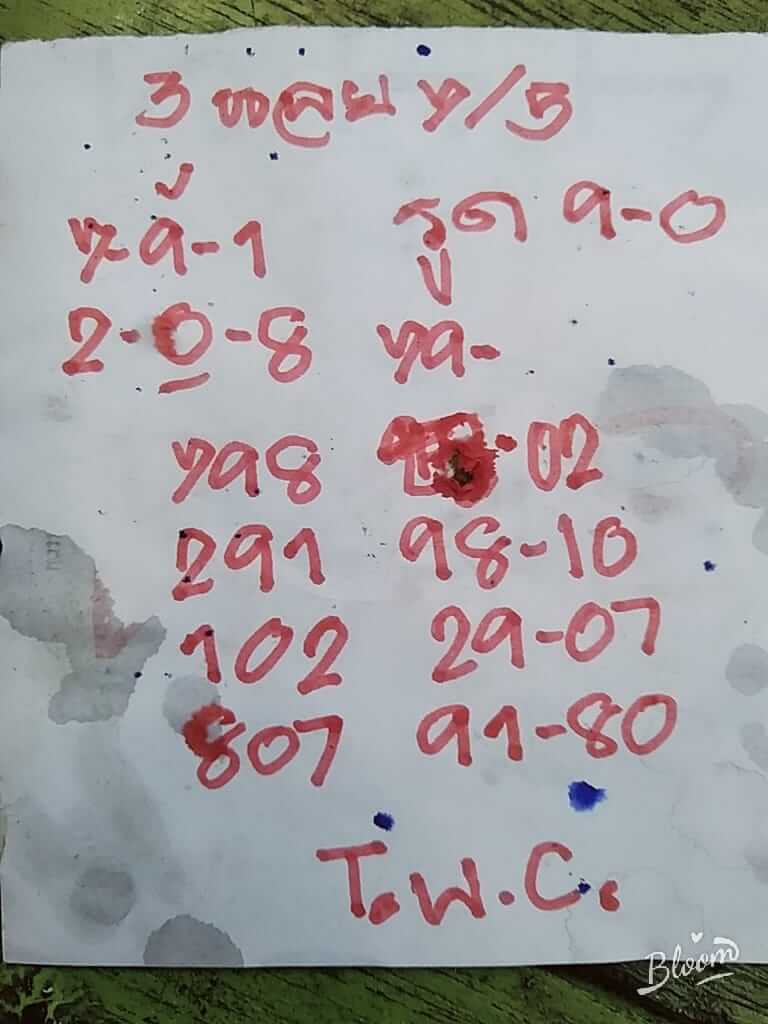 3
7-9-1 รูด 9-0
2-0-8 79-
798 -02
291 98-10
102 29-07
807 91-80
T.พ.C.
Bloom